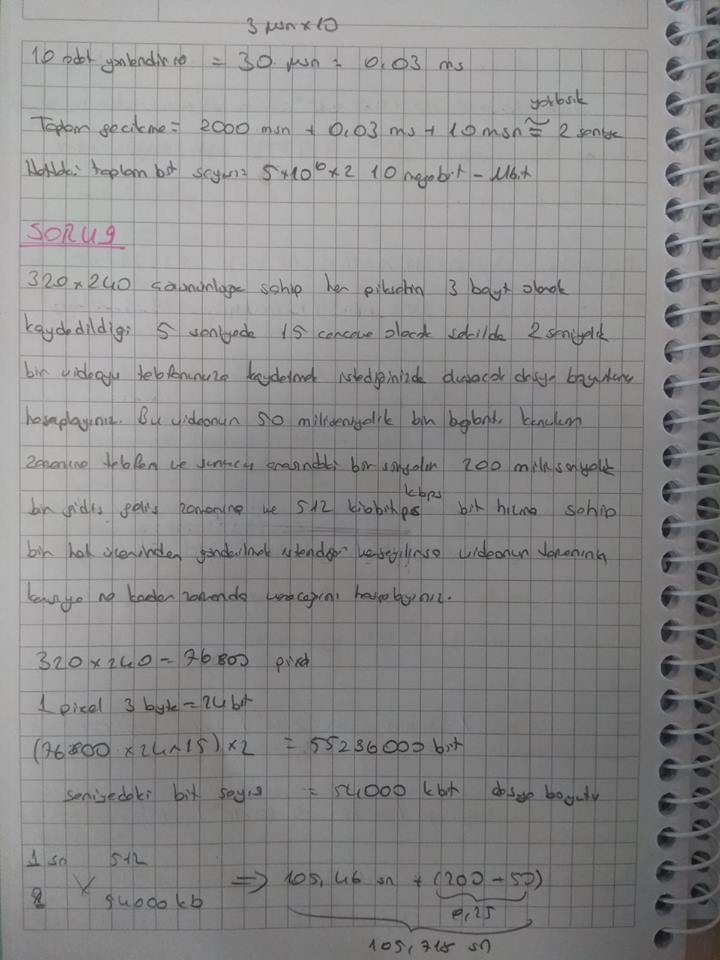 3 µsn x 10
10 adet yönlendirici = 30 µsn = 0,03 ms
yaklaşık
Toplam gecikme = 2000 msn + 0,03 ms + 10 msn ≅ 2 saniye
Hattaki toplam bit sayısı = 5 x 10⁶ x 2 10 megabit - Mbit
SORU 9
320 x 240 çözünürlüğe sahip her pikselin 3 bayt olarak
kaydedildiği 5 saniyede 15 çerçeve olacak şekilde 2 saniyelik
bir videoyu telefonunuza kaydetmek istediğinizde oluşacak dosya boyutunu
hesaplayınız. Bu videonun 50 milisaniyelik bir bağlantı kurulum
zamanına telefon ve sunucu arasındaki bir sinyalin 200 milisaniyelik
kbps
bir gidiş geliş zamanına ve 512 kilobit/ps bit hızına sahip
bir hat üzerinden gönderilmek istendiği videonun tamamının
karşıya ne kadar zamanda varacağını hesaplayınız.
320 x 240 = 76800 pixel
1 pixel 3 byte = 24 bit
(76800 x 24 x 15) x 2 = 55236000 bit
saniyedeki bit sayısı = 54000 kbit dosya boyutu
1 sn 512
54000 kb
⇒ 105,46 sn + (200 + 50)
0,25
105,715 sn